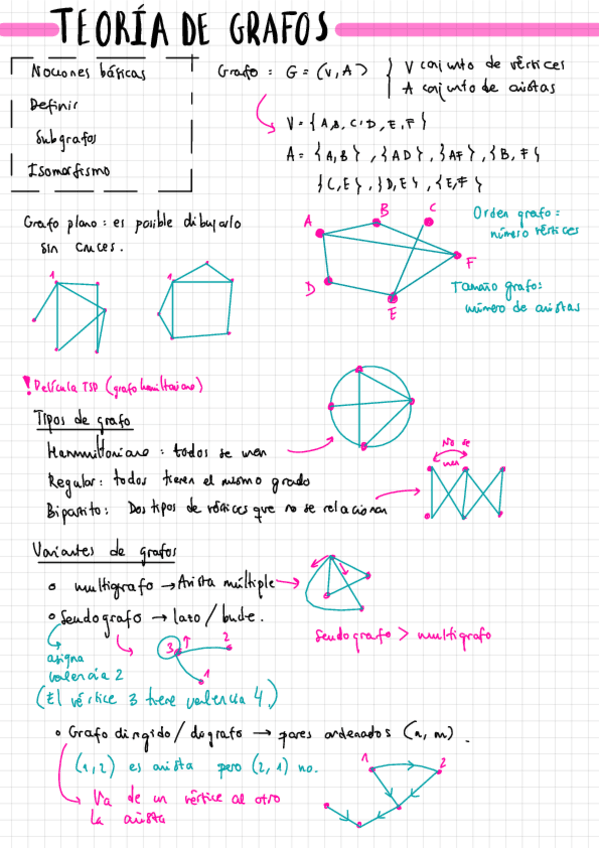 TEORÍA DE GRAFOS
Nociones básicas
Definir
Subgrafos
Isomorfismo
Grafo : G = (V, A) } V conjunto de vértices
A conjunto de aristas
V = {A,B, C, D, E, F}
A = {A,B} , {AD} , {AF} , {B, F}
{C,E} , {D,E} , {E,F}
Grafo plano : es posible dibujarlo
sin cruces.
A
B
C
D
E
F
Orden grafo :
número vértices
Tamaño grafo :
número de aristas
1
1
! Película TSP (grafo hamiltoniano)
Tipos de grafo
: todos se unen
Regular : todos tienen el mismo grado
Bipartito : Dos tipos de vértices que no se relacionan
No se
unen
Variantes de grafos
multigrafo → Arista múltiple →
Seudografo → lazo / bucle.
3
2
1
Seudografo > multigrafo
asigna
valencia 2
(El vértice 3 tiene valencia 4)
Grafo dirigido / digrafo → pares ordenados (n, m).
(1,2) es arista pero (2, 1) no.
1
2
Va de un vértice al otro
la arista